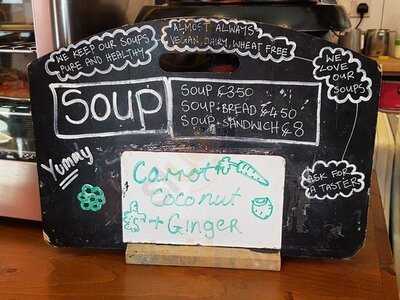 WE KEEP OUR SOUPS
PURE AND HEALTHY
ALMOST ALWAYS
VEGAN, DAIRY, WHEAT FREE
WE
LOVE
OUR
SOUPS
SOUP
SOUP £3.50
SOUP + BREAD £4.50
SOUP + SANDWICH £8
Yummy
ASK FOR
A TASTER
Carrot
Coconut
+ Ginger